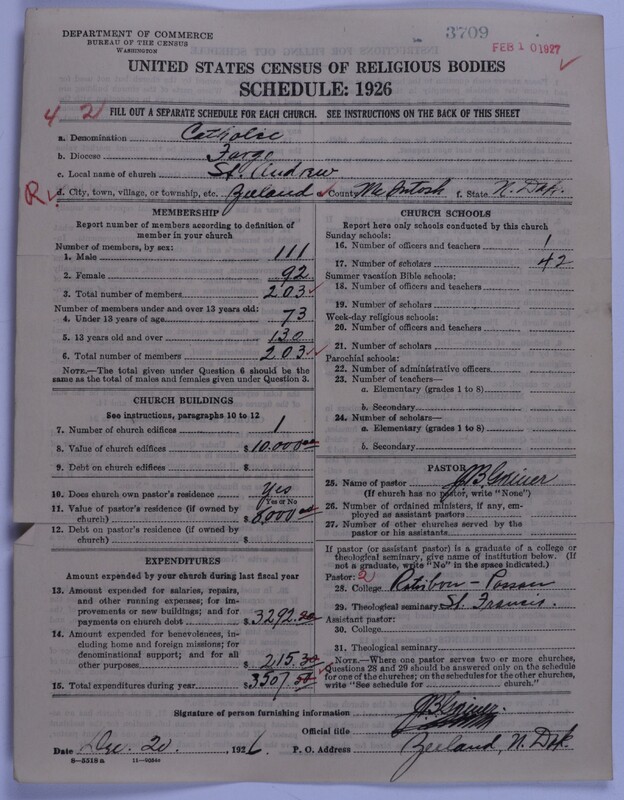 DEPARTMENT OF COMMERCE
BUREAU OF THE CENSUS
WASHINGTON
3709
FEB 10 1927
UNITED STATES CENSUS OF RELIGIOUS BODIES
SCHEDULE: 1926
4 2
FILL OUT A SEPARATE SCHEDULE FOR EACH CHURCH. SEE INSTRUCTIONS ON THE BACK OF THIS SHEET
a. Denomination Catholic
b. Diocese Fargo
c. Local name of church St. Andrew
R
d. City, town, village, or township, etc. Zeeland County McIntosh f. State N. Dak.
MEMBERSHIP
Report number of members according to definition of
member in your church
Number of members, by sex:
1. Male 111
2. Female 92
3. Total number of members 203
Number of members under and over 13 years old:
4. Under 13 years of age 73
5. 13 years old and over 130
6. Total number of members 203
NOTE.—The total given under Question 6 should be the
same as the total of males and females given under Question 3.
CHURCH BUILDINGS
See instructions, paragraphs 10 to 12
7. Number of church edifices 1
8. Value of church edifices $ 10.000
9. Debt on church edifices $
10. Does church own pastor's residence Yes
Yes or No
11. Value of pastor's residence (if owned by
church) $ 8,000
12. Debt on pastor's residence (if owned by
church) $
EXPENDITURES
Amount expended by your church during last fiscal year
13. Amount expended for salaries, repairs,
and other running expenses; for im-
provements or new buildings; and for
payments on church debt $ 3292.
14. Amount expended for benevolences, in-
cluding home and foreign missions; for
denominational support; and for all
other purposes $ 215.
15. Total expenditures during year $ 3507
CHURCH SCHOOLS
Report here only schools conducted by this church
Sunday schools:
16. Number of officers and teachers 1
17. Number of scholars 42
Summer vacation Bible schools:
18. Number of officers and teachers
19. Number of scholars
Week-day religious schools:
20. Number of officers and teachers
21. Number of scholars
Parochial schools:
22. Number of administrative officers
23. Number of teachers—
a. Elementary (grades 1 to 8)
b. Secondary
24. Number of scholars—
a. Elementary (grades 1 to 8)
b. Secondary
PASTOR
25. Name of pastor
(If church has no pastor, write "None")
26. Number of ordained ministers, if any, em-
ployed as assistant pastors
27. Number of other churches served by the
pastor or his assistants
If pastor (or assistant pastor) is a graduate of a college or
theological seminary, give name of institution below. (If
not a graduate, write "No" in the space indicated.)
Pastor: 2
28. College Ratisbon - Passau
29. Theological seminary St. Francis.
Assistant pastor:
30. College
31. Theological seminary
NOTE.—Where one pastor serves two or more churches,
Questions 28 and 29 should be answered only on the schedule
for one of the churches; on the schedules for the other churches,
write "See schedule for church."
Signature of person furnishing information
Official title
Date Dec. 20. , 1926 P. O. Address Zeeland, N. Dak.
8—5518 a